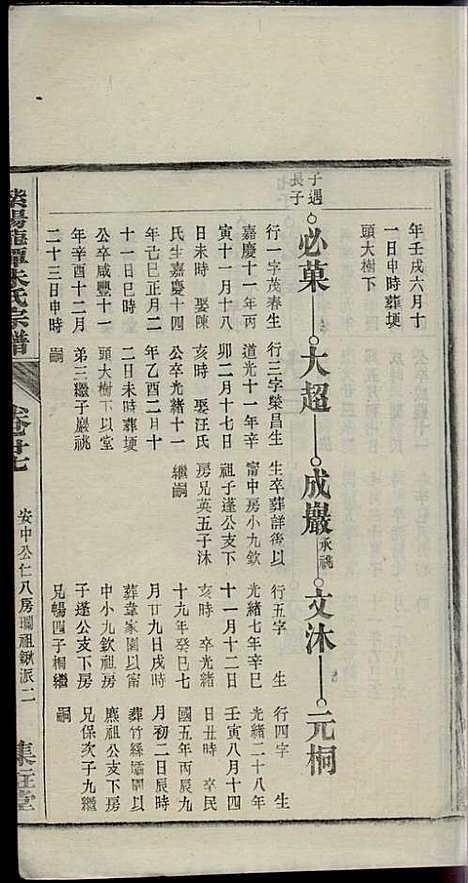 年壬戌六月十
一日申時葬埂
頭大樹下
子遇
長子
必菓
大超
成巖承祧
文沐
元桐
行一字茂春生
嘉慶十一年丙
寅十一月十八
日未時 娶陳
氏生嘉慶十四
年己巳正月二
十一日巳時
公卒咸豐十一
年辛酉十二月
二十三日申時
行三字榮昌生
道光十一年辛
卯二月十七日
亥時 娶汪氏
公卒光緒十一
年乙酉二月十
二日未時葬埂
頭大樹下以堂
弟三繼子巖祧
嗣
生卒葬詳後以
甯中房小九欽
祖子逢公支下
房兄英五子沐
繼嗣
行五字 生
光緒七年辛巳
十一月十二日
亥時 卒光緒
十九年癸巳七
月廿九日戌時
葬韋家園以甯
中小九欽祖房
子逢公支下房
兄暢四子桐繼
嗣
行四字 生
光緒二十八年
壬寅八月十四
日丑時 卒民
國五年丙辰九
月初二日辰時
葬竹絲壩圓以
熊祖公支下房
兄保次子九繼
嗣
紫陽龍潭朱氏宗譜
卷廿七
安中公仁八房瑚祖鍬派二
集注堂